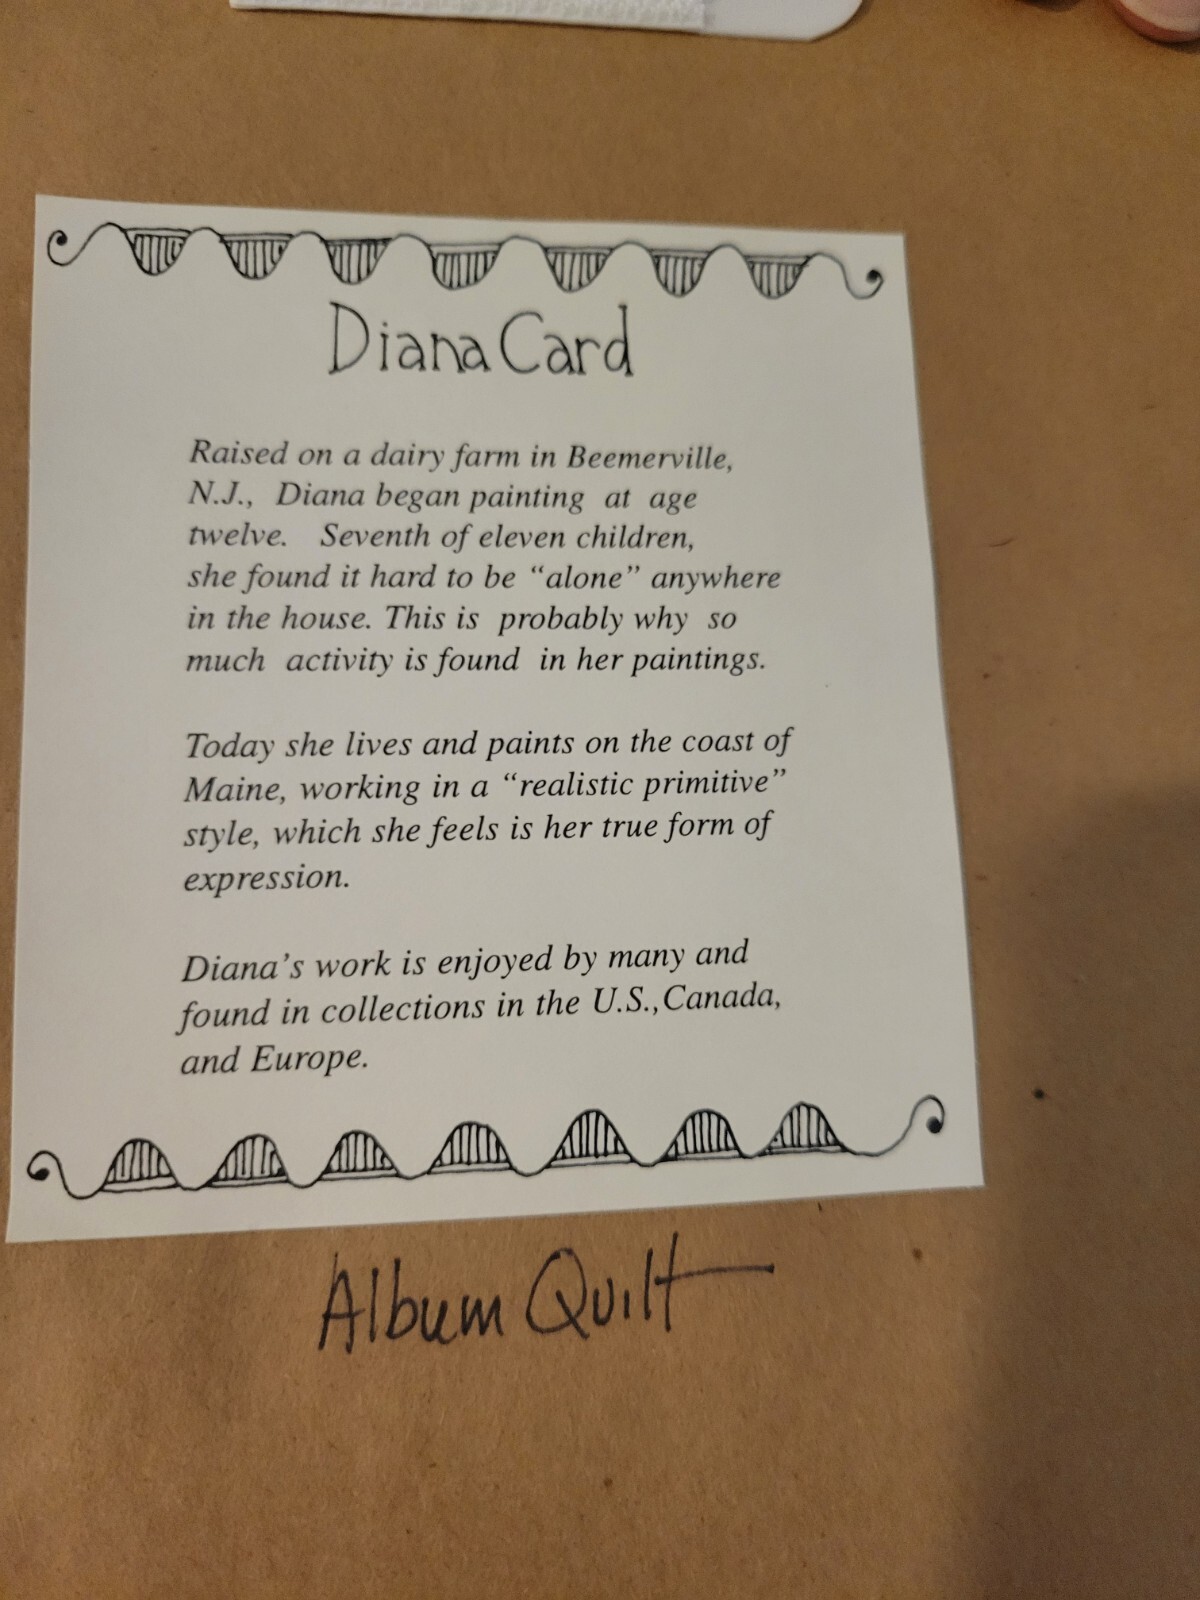 Diana Card
Raised on a dairy farm in Beemerville,
N.J., Diana began painting at age
twelve. Seventh of eleven children,
she found it hard to be “alone” anywhere
in the house. This is probably why so
much activity is found in her paintings.
Today she lives and paints on the coast of
Maine, working in a “realistic primitive”
style, which she feels is her true form of
expression.
Diana’s work is enjoyed by many and
found in collections in the U.S.,Canada,
and Europe.
Album Quilt